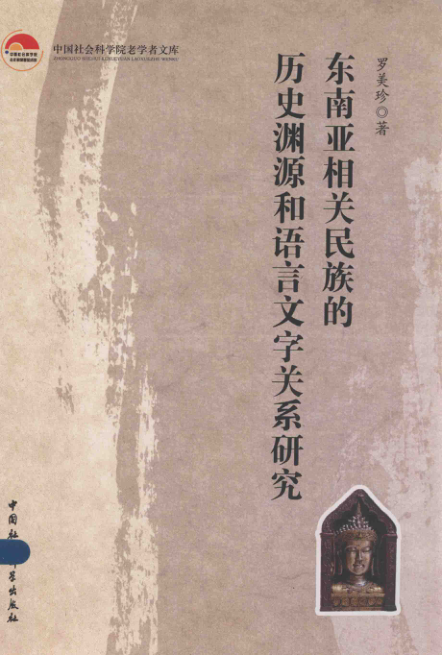 中国社会科学院老学者文库
罗美珍◎著
东南亚相关民族的
历史渊源和语言文字关系研究
中国社
学出版社